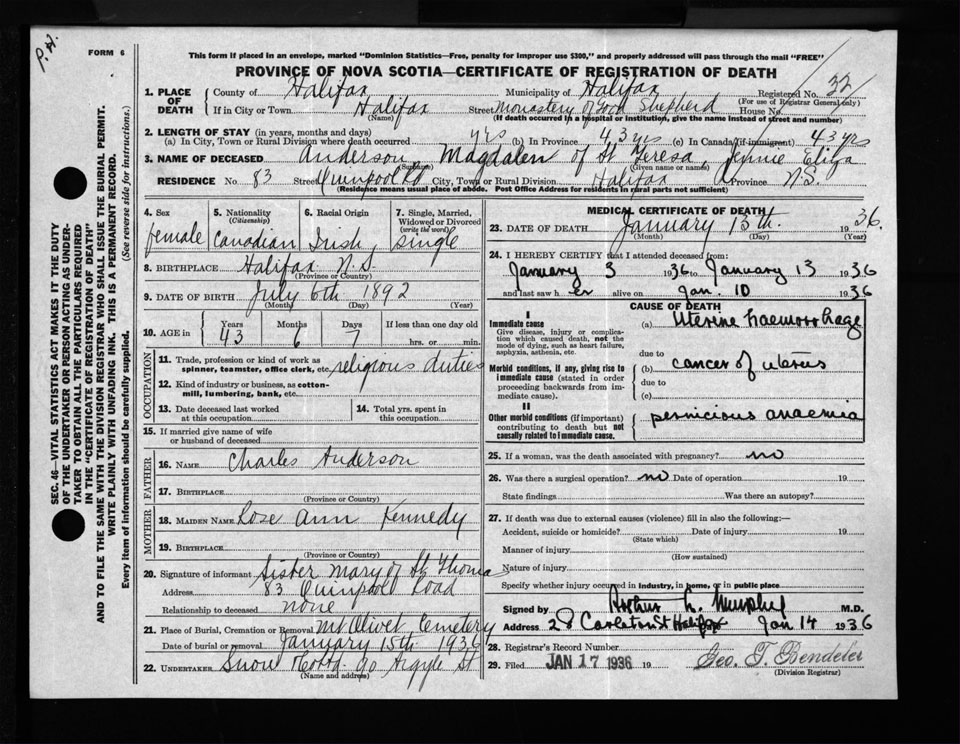 P.H.
FORM 6
This form if placed in an envelope, marked "Dominion Statistics—Free, penalty for improper use $300," and properly addressed will pass through the mail "FREE"
PROVINCE OF NOVA SCOTIA—CERTIFICATE OF REGISTRATION OF DEATH
SEC. 46—VITAL STATISTICS ACT MAKES IT THE DUTY
OF THE UNDERTAKER OR PERSON ACTING AS UNDER-
TAKER TO OBTAIN ALL THE PARTICULARS REQUIRED
IN THE "CERTIFICATE OF REGISTRATION OF DEATH"
AND TO FILE THE SAME WITH THE DIVISION REGISTRAR WHO SHALL ISSUE THE BURIAL PERMIT.
WRITE PLAINLY WITH UNFADING INK. THIS IS A PERMANENT RECORD.
Every item of information should be carefully supplied. (See reverse side for instructions.)
1. PLACE OF DEATH County of Halifax Municipality of Halifax Registered No. 32
(For use of Registrar General only)
If in City or Town Halifax Street Monastery of Good Shepherd House No.
(Name) (If death occurred in a hospital or institution, give the name instead of street and number)
2. LENGTH OF STAY (in years, months and days)
(a) In City, Town or Rural Division where death occurred yrs (b) In Province 43 yrs (c) In Canada (if immigrant) 43 yrs
3. NAME OF DECEASED Anderson, Magdalen of St Teresa, Jennie Eliza
(Surname) (Given name or names)
RESIDENCE No. 83 Street Quinpool Rd City, Town or Rural Division Halifax Province N.S.
(Residence means usual place of abode. Post Office Address for residents in rural parts not sufficient)
4. Sex
female
5. Nationality
(Citizenship)
Canadian
6. Racial Origin
Irish
7. Single, Married,
Widowed or Divorced
(write the word)
single
8. BIRTHPLACE Halifax N.S.
(Province or Country)
9. DATE OF BIRTH July 6th 1892
(Month) (Day) (Year)
10. AGE in Years Months Days If less than one day old
43 6 7 hrs. or min.
OCCUPATION
11. Trade, profession or kind of work as
spinner, teamster, office clerk, etc. religious duties
12. Kind of industry or business, as cotton-
mill, lumbering, bank, etc.
13. Date deceased last worked
at this occupation
14. Total yrs. spent in
this occupation
15. If married give name of wife
or husband of deceased
FATHER
16. NAME Charles Anderson
17. BIRTHPLACE
(Province or Country)
MOTHER
18. MAIDEN NAME Rose Ann Kennedy
19. BIRTHPLACE
(Province or Country)
20. Signature of informant Sister Mary of St Thomas
Address 83 Quinpool Road
Relationship to deceased none
21. Place of Burial, Cremation or Removal Mt Olivet Cemetery
Date of burial or removal January 15th 1936
22. UNDERTAKER Snow 90 Argyle St
(Name and address)
MEDICAL CERTIFICATE OF DEATH
23. DATE OF DEATH January 13th 1936
(Month) (Day) (Year)
24. I HEREBY CERTIFY that I attended deceased from:
January 3 1936 to January 13 1936
and last saw h er alive on Jan. 10 1936
CAUSE OF DEATH
I
Immediate cause
Give disease, injury or complica-
tion which caused death, not the
mode of dying, such as heart failure,
asphyxia, asthenia, etc.
(a) Uterine haemorrhage
due to
Morbid conditions, if any, giving rise to
immediate cause (stated in order
proceeding backwards from im-
mediate cause).
(b) cancer of uterus
due to
(c)
II
Other morbid conditions (if important)
contributing to death but not
causally related to immediate cause.
pernicious anaemia
25. If a woman, was the death associated with pregnancy? no
26. Was there a surgical operation? no Date of operation 19
State findings Was there an autopsy?
27. If death was due to external causes (violence) fill in also the following:—
Accident, suicide or homicide? Date of injury 19
(State which)
Manner of injury
(How sustained)
Nature of injury
Specify whether injury occurred in industry, in home, or in public place
Signed by Arthur L. Murphy M.D.
Address 28 Carleton St Halifax Jan 14 1936
28. Registrar's Record Number
29. Filed JAN 17 1936 19 Geo. T. Bendeler
(Division Registrar)